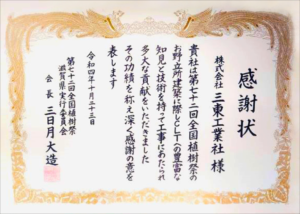 感謝状
株式会社 三東工業社 様
貴社は第七十二回全国植樹祭の
お野立所建築に際しCLTへの豊富な
知見と技術を持って工事にあたられ
多大な貢献をいただきました
その功績を称え深く感謝の意を
表します
令和四年十月二十三日
第七十二回全国植樹祭
滋賀県実行委員会
会長 三日月大造